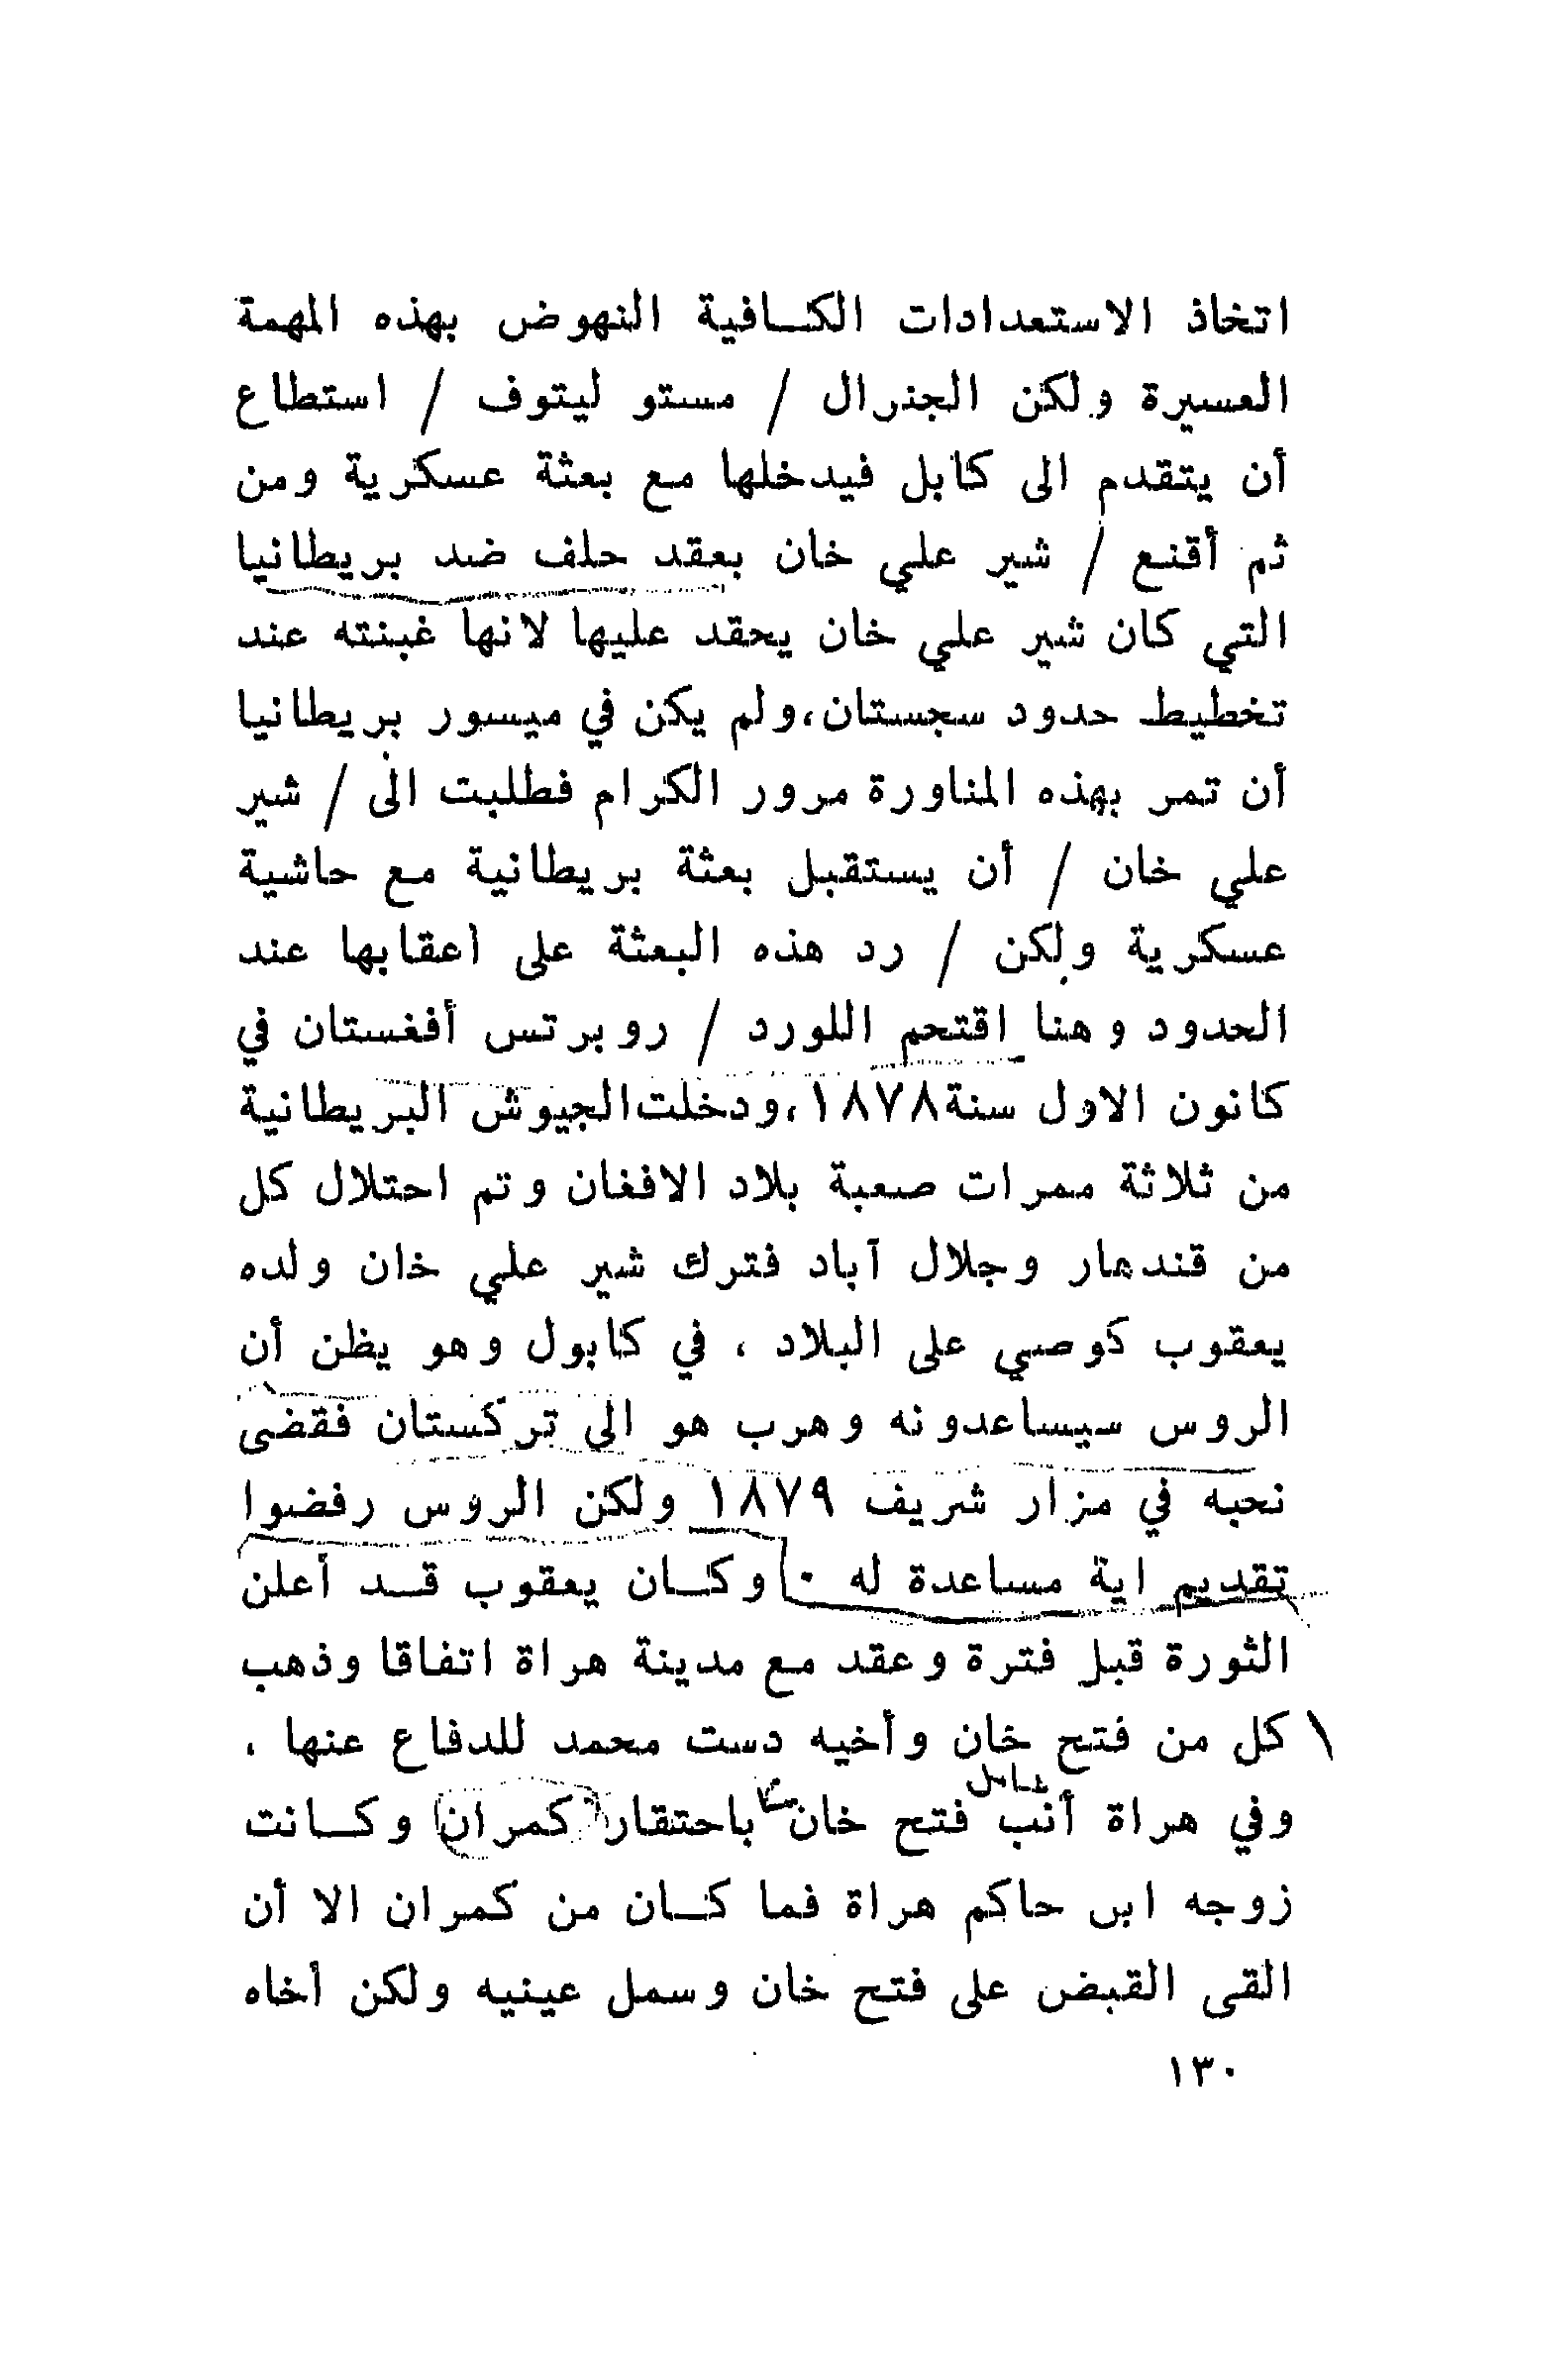 اتخاذ الاستعدادات الكافية النهوض بهذه المهمة
العسيرة ولكن الجنرال / مستو ليتوف / استطاع
أن يتقدم الى كابل فيدخلها مع بعثة عسكرية ومن
ثم أقنع / شير علي خان بعقد حلف ضد بريطانيا
التي كان شير علي خان يحقد عليها لانها غبنته عند
تخطيط حدود سجستان، ولم يكن في ميسور بريطانيا
أن تمر بهذه المناورة مرور الكرام فطلبت الى / شير
علي خان / أن يستقبل بعثة بريطانية مع حاشية
عسكرية ولكن / رد هذه البعثة على أعقابها عند
الحدود وهنا اقتحم اللورد / روبرتس أفغستان في
كانون الاول سنة ١٨٧٨، ودخلت الجيوش البريطانية
من ثلاثة ممرات صعبة بلاد الافغان وتم احتلال كل
من قندهار وجلال آباد فترك شير علي خان ولده
يعقوب كوصي على البلاد ، في كابول وهو يظن أن
الروس سيساعدونه وهرب هو الى تركستان فقضى
نحبه في مزار شريف ١٨٧٩ ولكن الروس رفضوا
تقديم اية مساعدة له . وكان يعقوب قد أعلن
الثورة قبل فترة وعقد مع مدينة هراة اتفاقا وذهب
كل من فتح خان وأخيه دست محمد للدفاع عنها ،
وفي هراة أنب فتح خان باحتقار كمران وكانت
زوجه ابن حاكم هراة فما كان من كمران الا أن
القى القبض على فتح خان وسمل عينيه ولكن أخاه
١٣٠